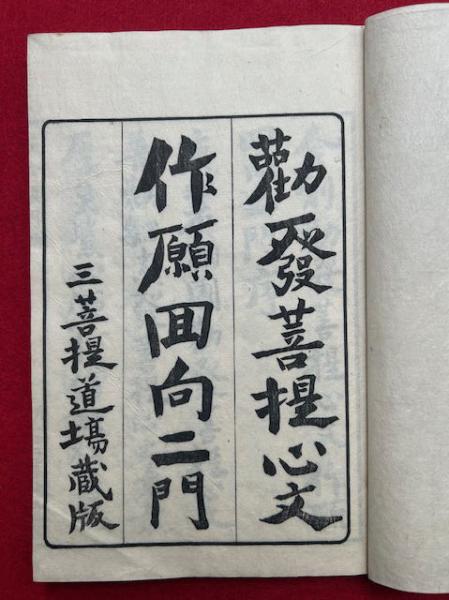 勸發菩提心文
作願回向二門
三菩提道場蔵版